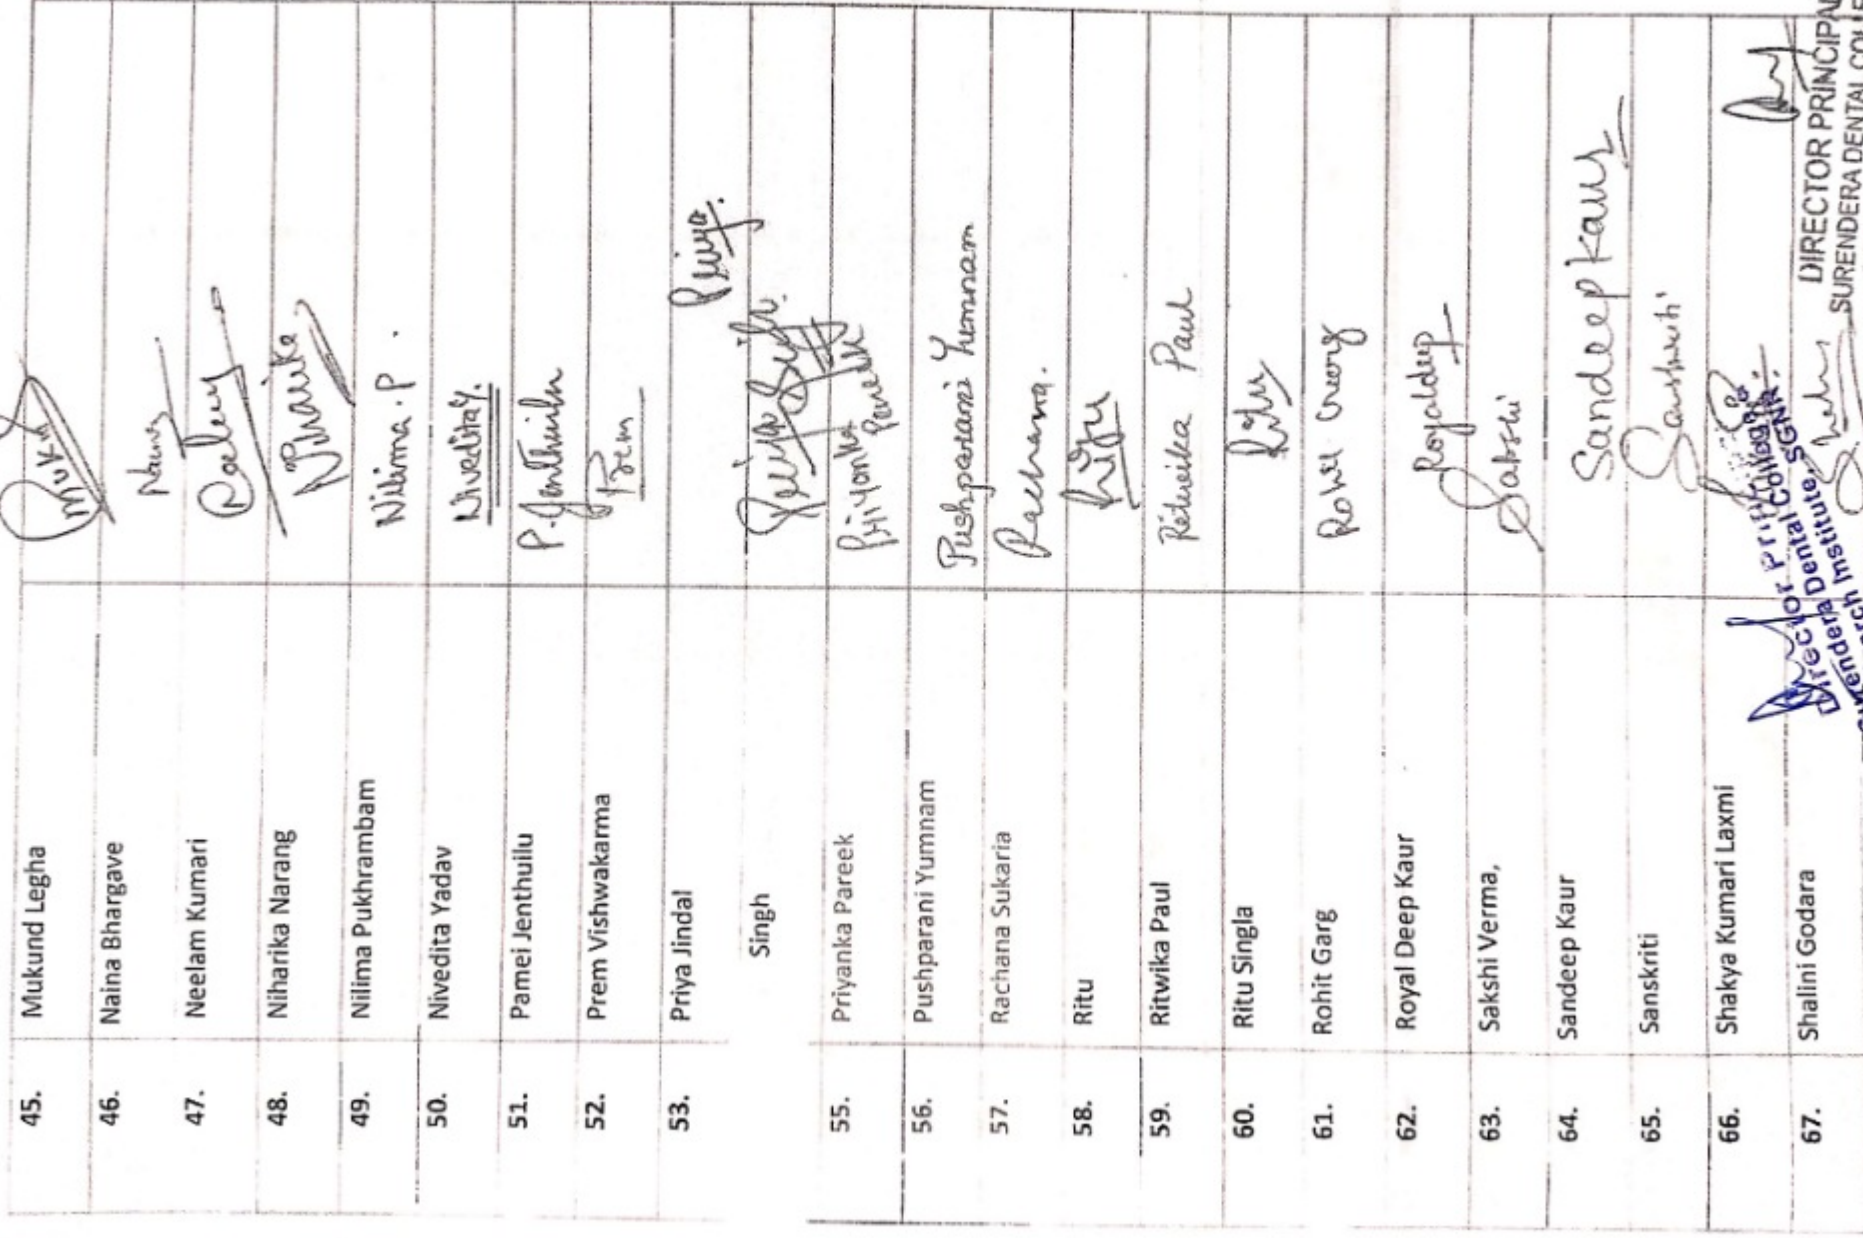 45. Mukund Legha Mukun
46. Naina Bhargave Naina
47. Neelam Kumari
48. Niharika Narang Niharika
49. Nilima Pukhrambam Nilima.P.
50. Nivedita Yadav NiveditaY.
51. Pamei Jenthuilu P. Jenthuilu
52. Prem Vishwakarma Prem
53. Priya Jindal Priya.
Singh Priya Singh.
55. Priyanka Pareek Priyanka Pareek
56. Pushparani Yumnam Pushparani Yumnam
57. Rachana Sukaria Rachana.
58. Ritu Ritu
59. Ritwika Paul Ritwika Paul
60. Ritu Singla Ritu
61. Rohit Garg Rohit Garg
62. Royal Deep Kaur Royaldeep
63. Sakshi Verma, Sakshi
64. Sandeep Kaur Sandeep Kaur
65. Sanskriti Sanskriti
66. Shakya Kumari Laxmi
67. Shalini Godara
Director Principal
Surendera Dental College
Research Institute, SGNR.
DIRECTOR PRINCIPAL
SURENDERA DENTAL